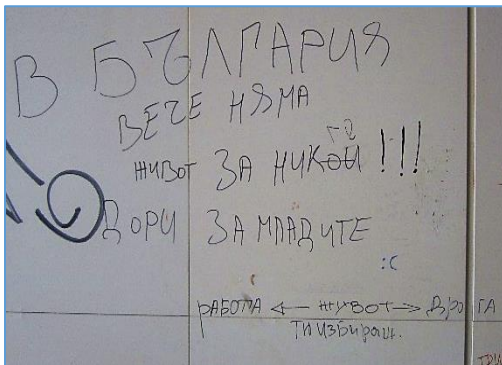 В БЪЛГАРИЯ
ВЕЧЕ НЯМА
живот ЗА НИКОЙ!!!
ДОРИ ЗА МЛАДИТЕ
:c
РАБОТА <— живот —> ДРОГА
ти избираш.